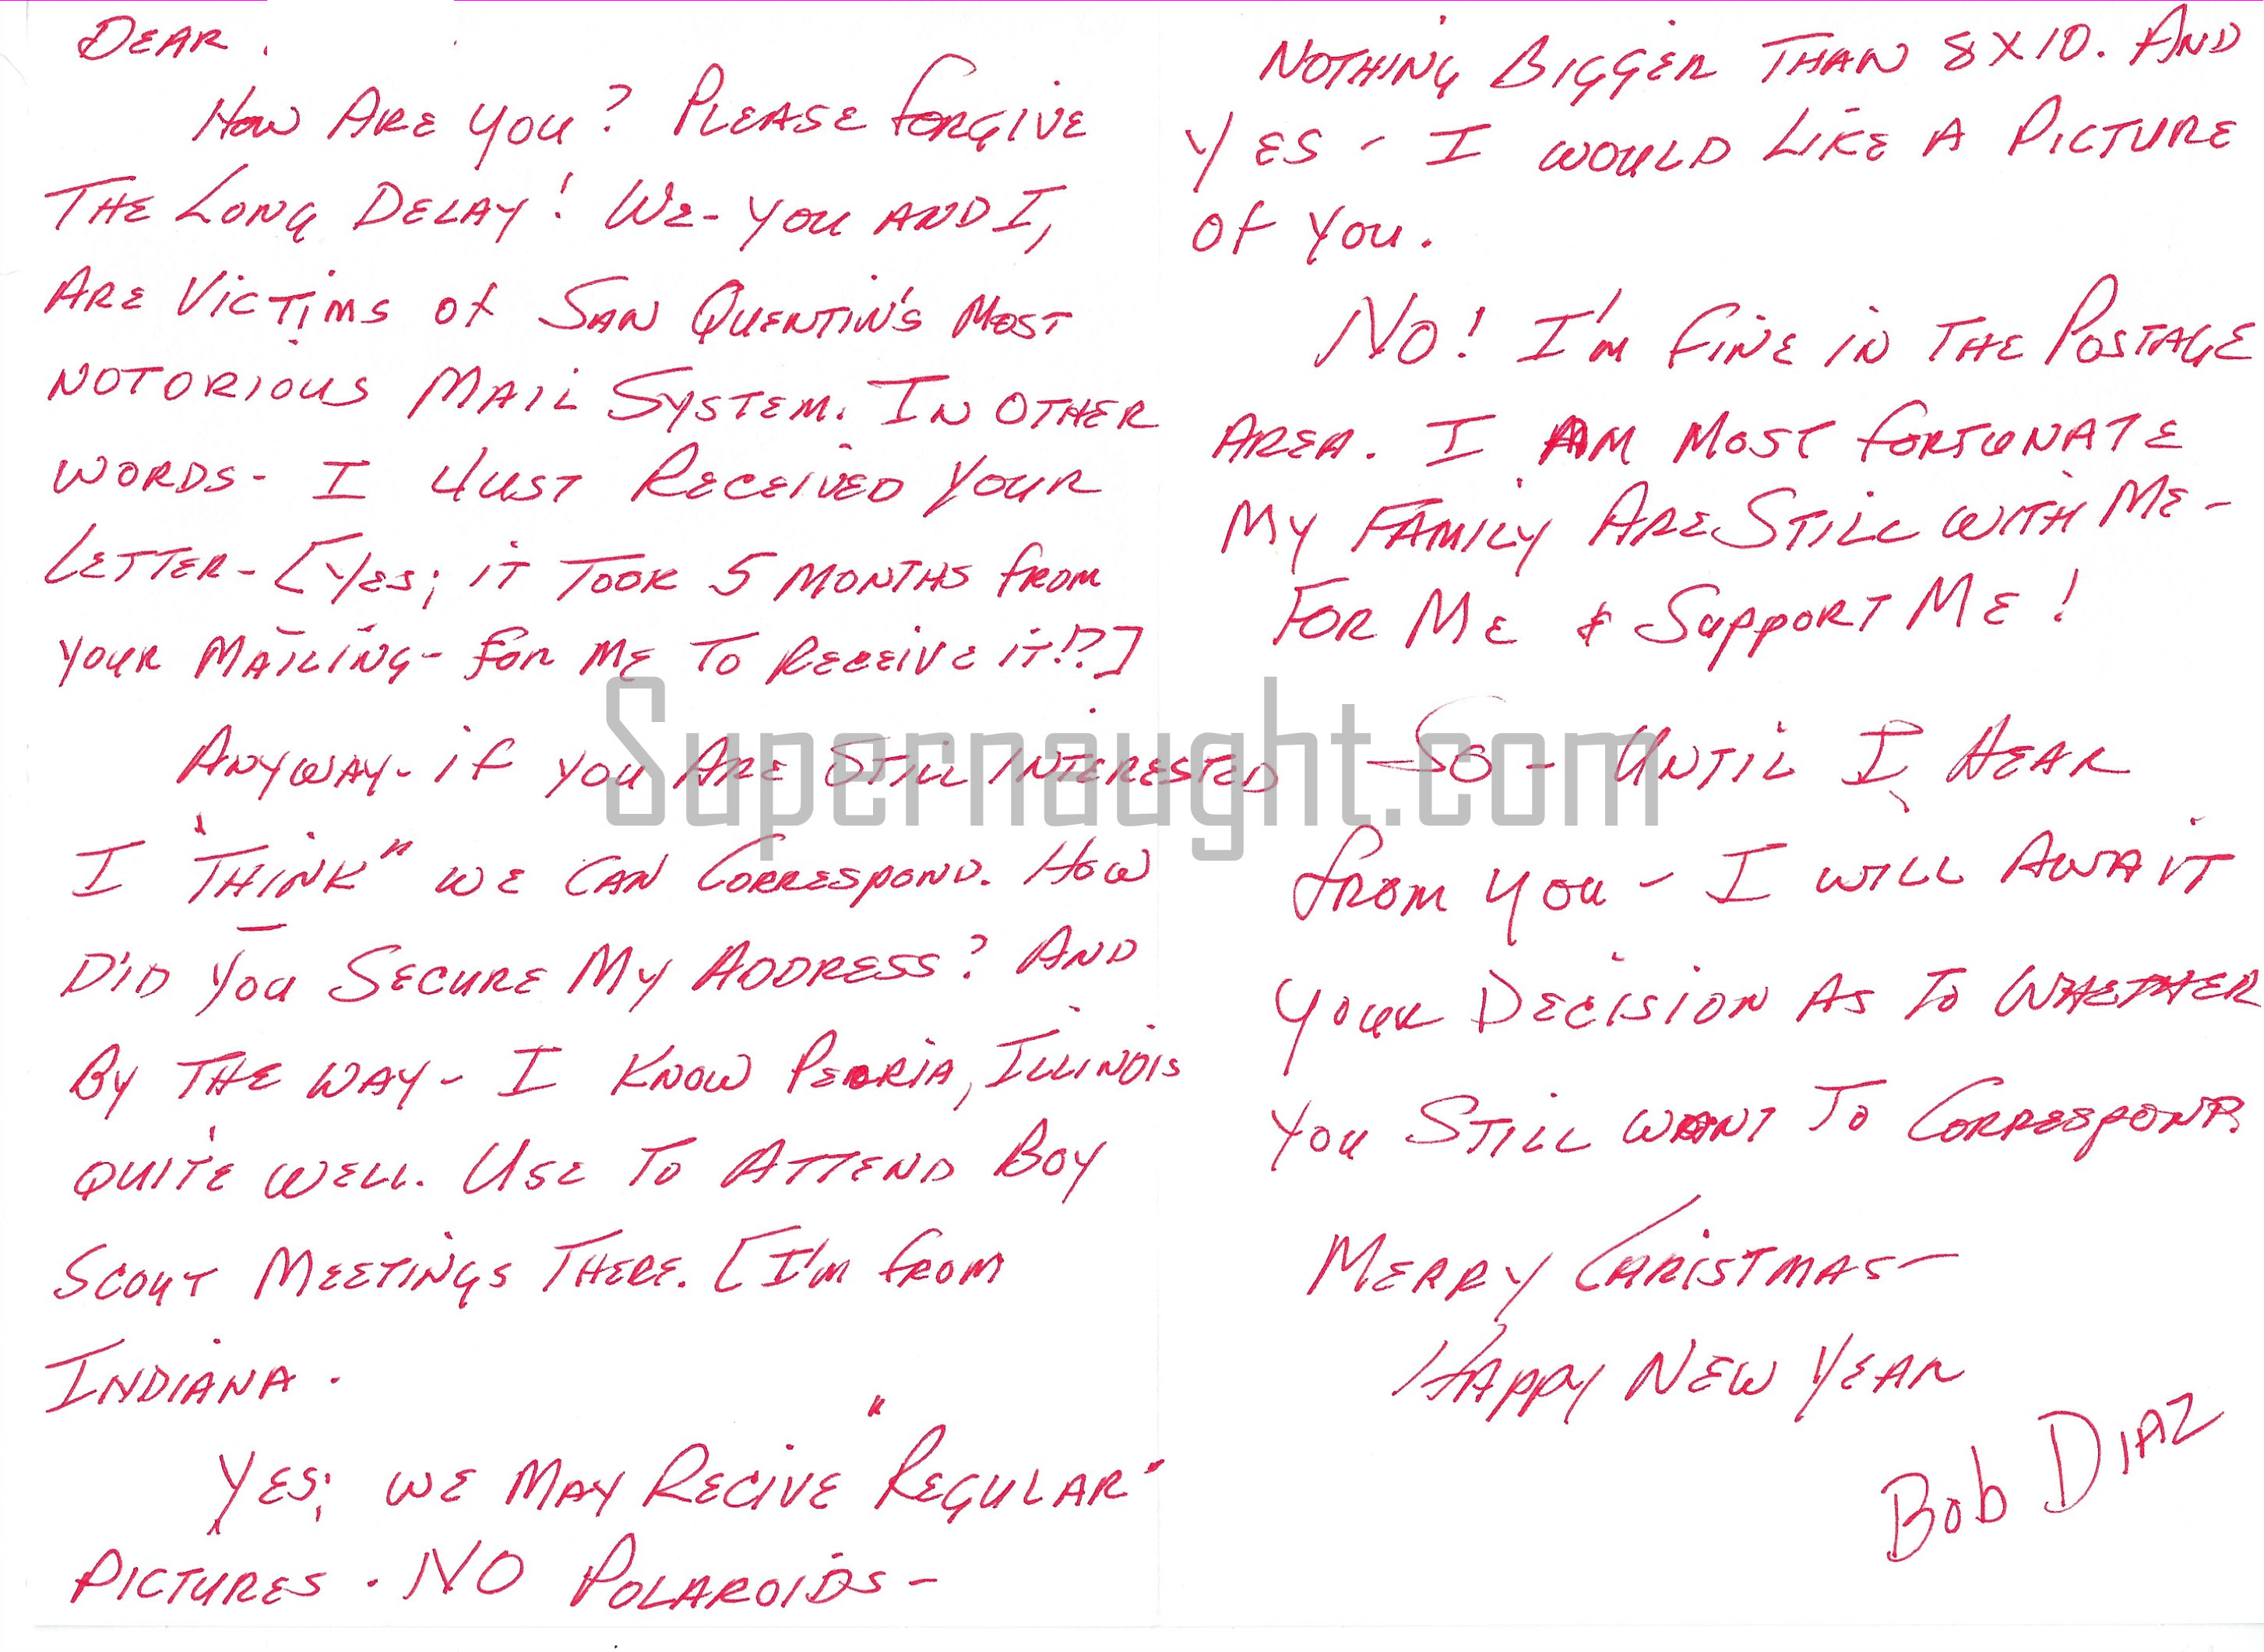 DEAR .
HOW ARE YOU? PLEASE FORGIVE
THE LONG DELAY! WE- YOU AND I,
ARE VICTIMS OF SAN QUENTIN'S MOST
NOTORIOUS MAIL SYSTEM. IN OTHER
WORDS- I JUST RECEIVED YOUR
LETTER- [YES; IT TOOK 5 MONTHS FROM
YOUR MAILING- FOR ME TO RECEIVE IT!?]
ANYWAY- IF YOU ARE STILL INTERESTED
I "THINK" WE CAN CORRESPOND. HOW
DID YOU SECURE MY ADDRESS? AND
BY THE WAY- I KNOW PEORIA, ILLINOIS
QUITE WELL. USE TO ATTEND BOY
SCOUT MEETINGS THERE. [I'M FROM
INDIANA.
YES; WE MAY RECIVE "REGULAR"
PICTURES. NO POLAROIDS-
NOTHING BIGGER THAN 8X10. AND
YES - I WOULD LIKE A PICTURE
OF YOU.
NO! I'M FINE IN THE POSTAGE
AREA. I AM MOST FORTUNATE
MY FAMILY ARE STILL WITH ME-
FOR ME & SUPPORT ME!
-SO- UNTIL I HEAR
FROM YOU - I WILL AWAIT
YOUR DECISION AS TO WHETHER
YOU STILL WANT TO CORRESPOND.
MERRY CHRISTMAS-
HAPPY NEW YEAR
BOB DIAZ
Supernaught.com